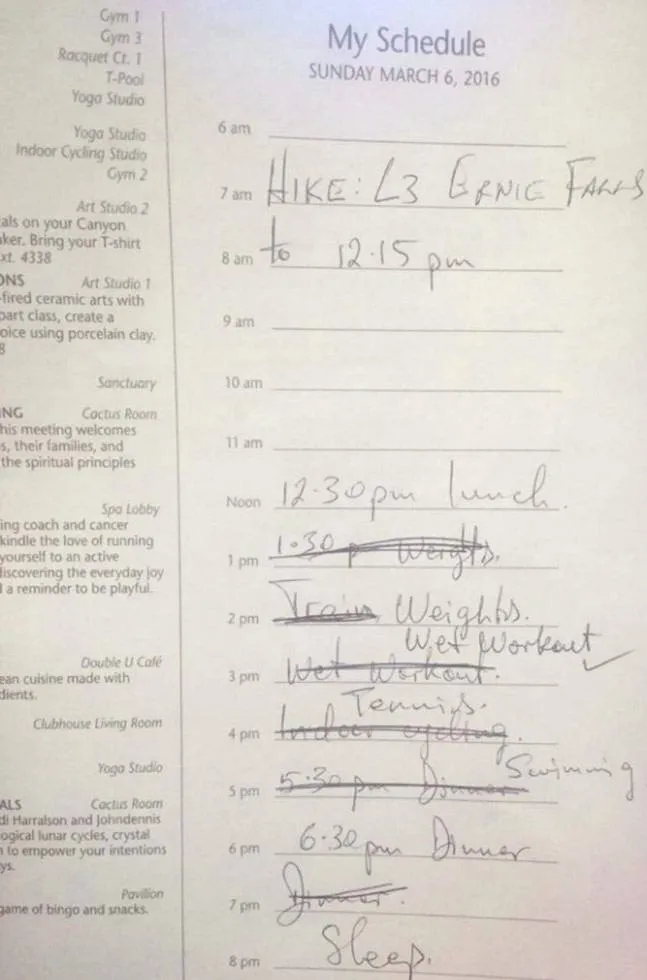 Gym 1
Gym 3
Racquet Ct. 1
T-Pool
Yoga Studio
Yoga Studio
Indoor Cycling Studio
Gym 2
Art Studio 2
als on your Canyon
aker. Bring your T-shirt
xt. 4338
ONS Art Studio 1
-fired ceramic arts with
part class, create a
oice using porcelain clay.
8
Sanctuary
NG Cactus Room
his meeting welcomes
s, their families, and
the spiritual principles
Spa Lobby
ing coach and cancer
kindle the love of running
yourself to an active
discovering the everyday joy
d a reminder to be playful.
Double U Café
ean cuisine made with
dients.
Clubhouse Living Room
Yoga Studio
ALS Cactus Room
di Harralson and Johndennis
ogical lunar cycles, crystal
n to empower your intentions
ys.
Pavilion
game of bingo and snacks.
My Schedule
SUNDAY MARCH 6, 2016
6 am
7 am HIKE: L3 ERNIE FALLS
8 am to 12.15 pm
9 am
10 am
11 am
Noon 12.30pm lunch.
1 pm 1.30 p Weights.
2 pm Train Weights.
Wet Workout
3 pm Wet Workout.
Tennis.
4 pm Indoor cycling.
Swimming
5 pm 5.30 pm Dinner
6 pm 6.30 pm Dinner
7 pm Dinner.
8 pm Sleep.